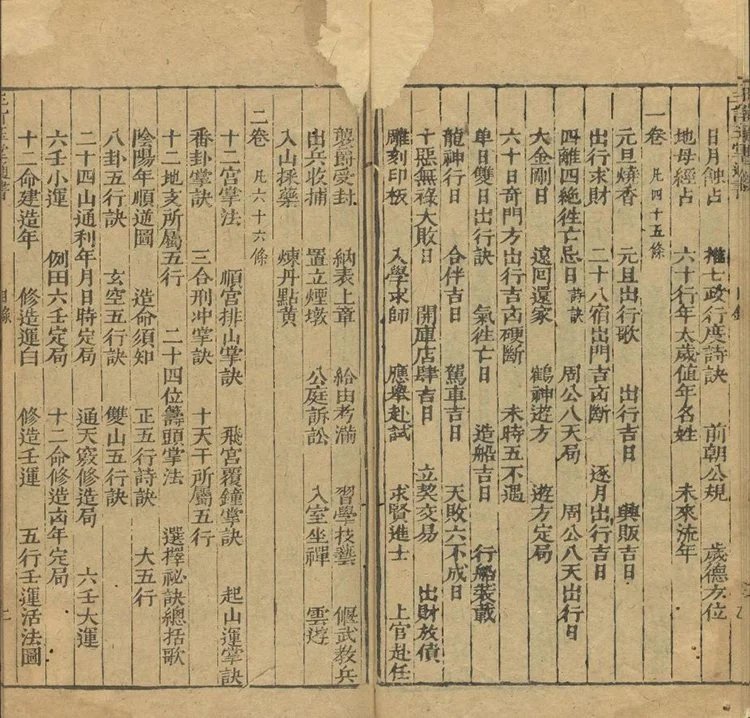 日月蝕占 推七政行度詩訣 前朝公規 歲德方位
地母經占 六十行年太歲値年名姓 未來流年
一卷 凡四十五條
元旦燒香 元旦出行歌 出行吉日 興販吉日
出行求財 二十八宿出門吉凶斷 逐月出行吉日
四離四絶徃亡忌日詩訣 周公八天局 周公八天出行日
大金剛日 遠囘還家 鶴神遊方 遊方定局
六十日奇門方出行吉凶硬斷 未時五不遇
单日雙日出行訣 氣徃亡日 造船吉日 行船装載
龍神行日 合伴吉日 駕車吉日 天敗六不成日
十惡無祿大敗日 開庫店肆吉日 立契交易 出財放債
雕刻印板 入學求師 應舉赴試 求賢進士 上官赴任
襲爵受封 納表上章 給由考滿 習學技藝 偃武教兵
出兵收捕 置立煙墩 公庭訴訟 入室坐禪 雲遊
入山採藥 煉丹點黃
二卷 凡六十六條
十二宫掌法 順宫排山掌訣 飛宫覆鐘掌訣 起山運掌訣
番卦掌訣 三合刑冲掌訣 十天干所屬五行
十二地支所屬五行 二十四位籌頭掌法 選擇祕訣總括歌
隂陽年順逆圖 造命須知 正五行詩訣 大五行
八卦五行訣 玄空五行訣 雙山五行訣
二十四山通利年月日時定局 通天竅修造局 六壬大運
六壬小運 例田六壬定局 十二命修造凶年定局
十二命建造年 修造運白 修造壬運 五行壬運活法圖
目錄
二